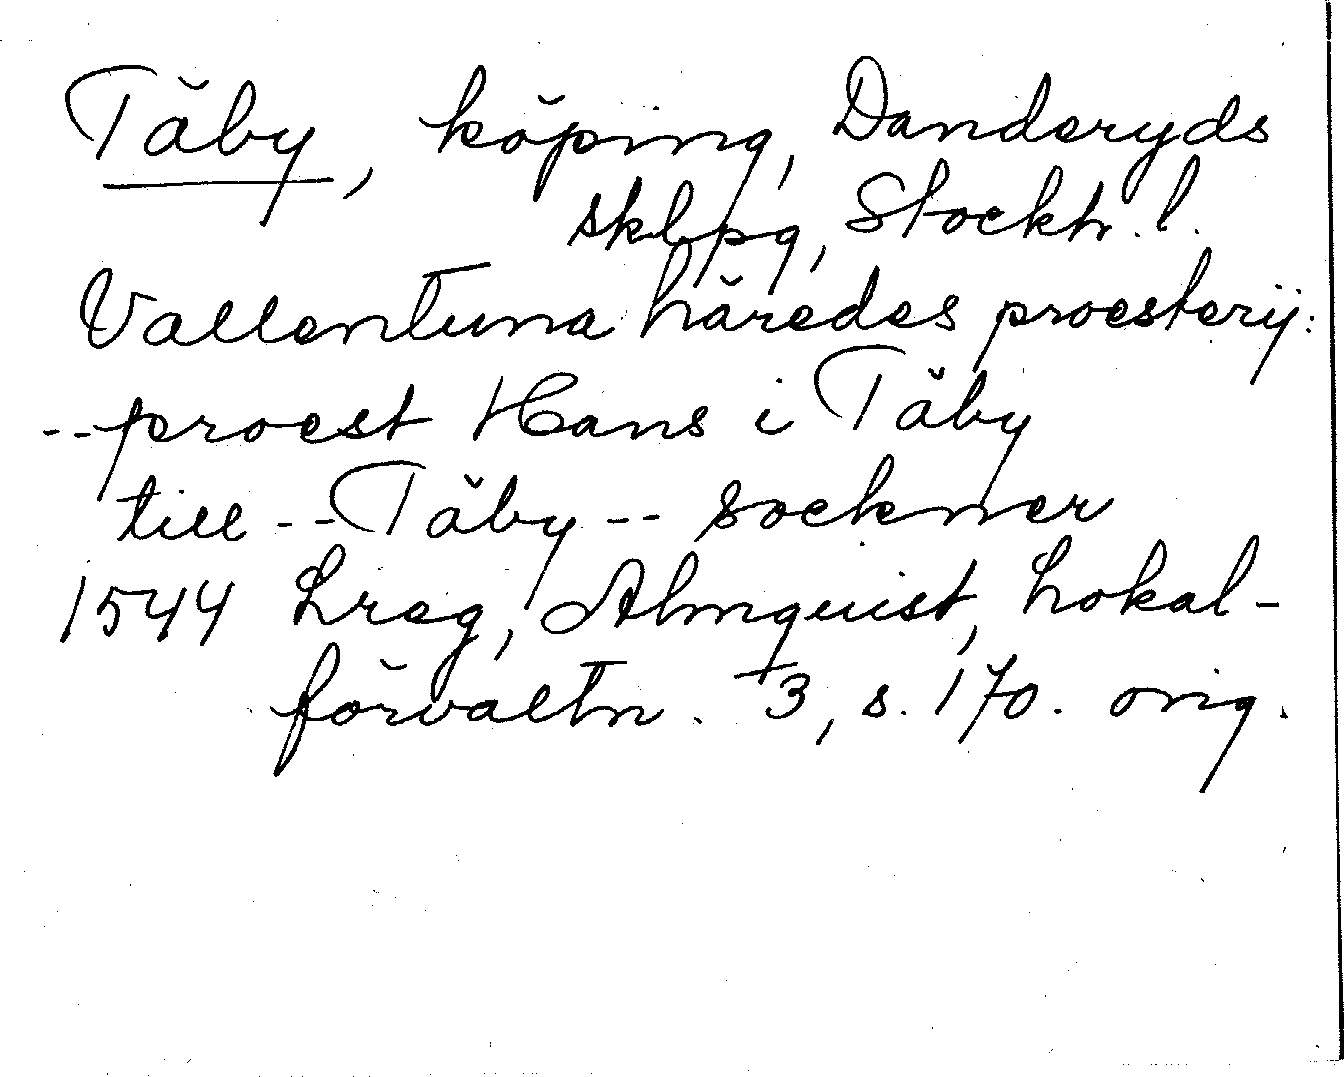 Täby, köping, Danderyds
sklpg, Stockh. l.
Vallentuna häredes proesterij:
--proest Hans i Täby
till -- Täby -- socknner
1544 Lreg, Almquist, Lokal-
förvaltn. 3, s. 170. orig.